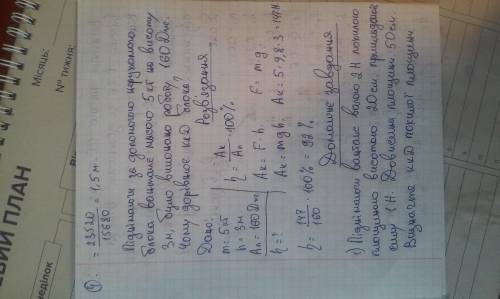 Місяць:
№ тижня:
ВИЙ ПЛАН
неділок
= 23520 / 15680 = 1,5 м
④ Піднімаючи за допомогою нерухомого
блока вантаж масою 5 кг на висоту
3 м, було виконано роботу 160 Дж.
Чому дорівнює ккд блока?
Дано:
Розв'язання
m = 5 кг
h = 3 м
Aп = 160 Дж
η = ?
η = Aк / Aп · 100%
Aк = F · h F = mg
Aк = mgh Aк = 5 · 9,8 · 3 = 147
η = 147 / 160 · 100% = 92%
Домашнє завдання
1) Піднімаючи вантаж вагою 2 Н похилою
площиною висотою 20 см прикладали
силу 1 Н. Довжина площини 50 см.
Визначте ккд похилої площини